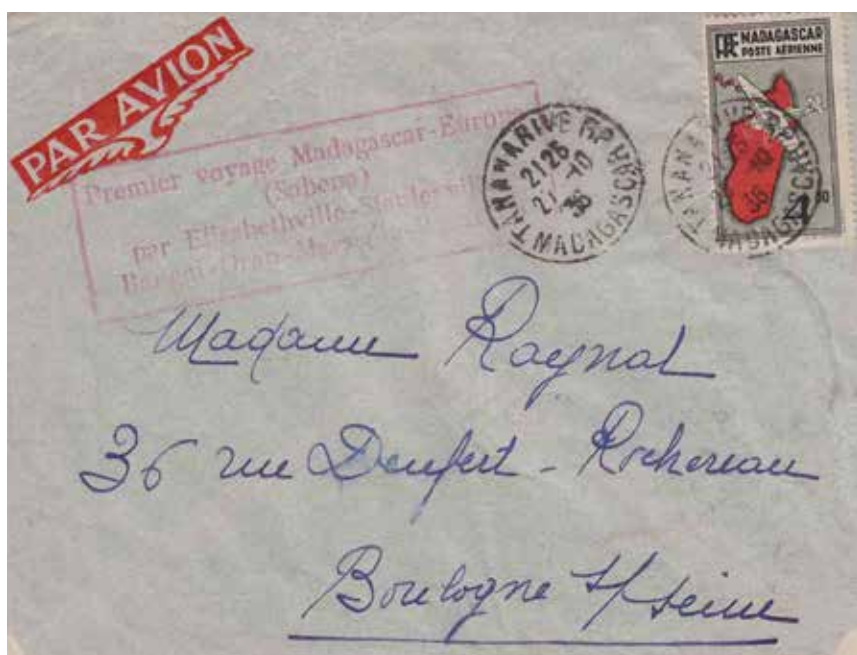 PAR AVION
Premier voyage Madagascar-Europe
(Sabena)
par Elisabethville-Stanleyville
Bangui-Oran-
TANANARIVE RP
2125
21-10
36
MADAGASCAR
MADAGASCAR
POSTE AÉRIENNE
TANANARIVE RP
10
36
MADAGASCAR
4
50
Madame Raynal
36 rue Denfert-Rochereau
Boulogne s/seine